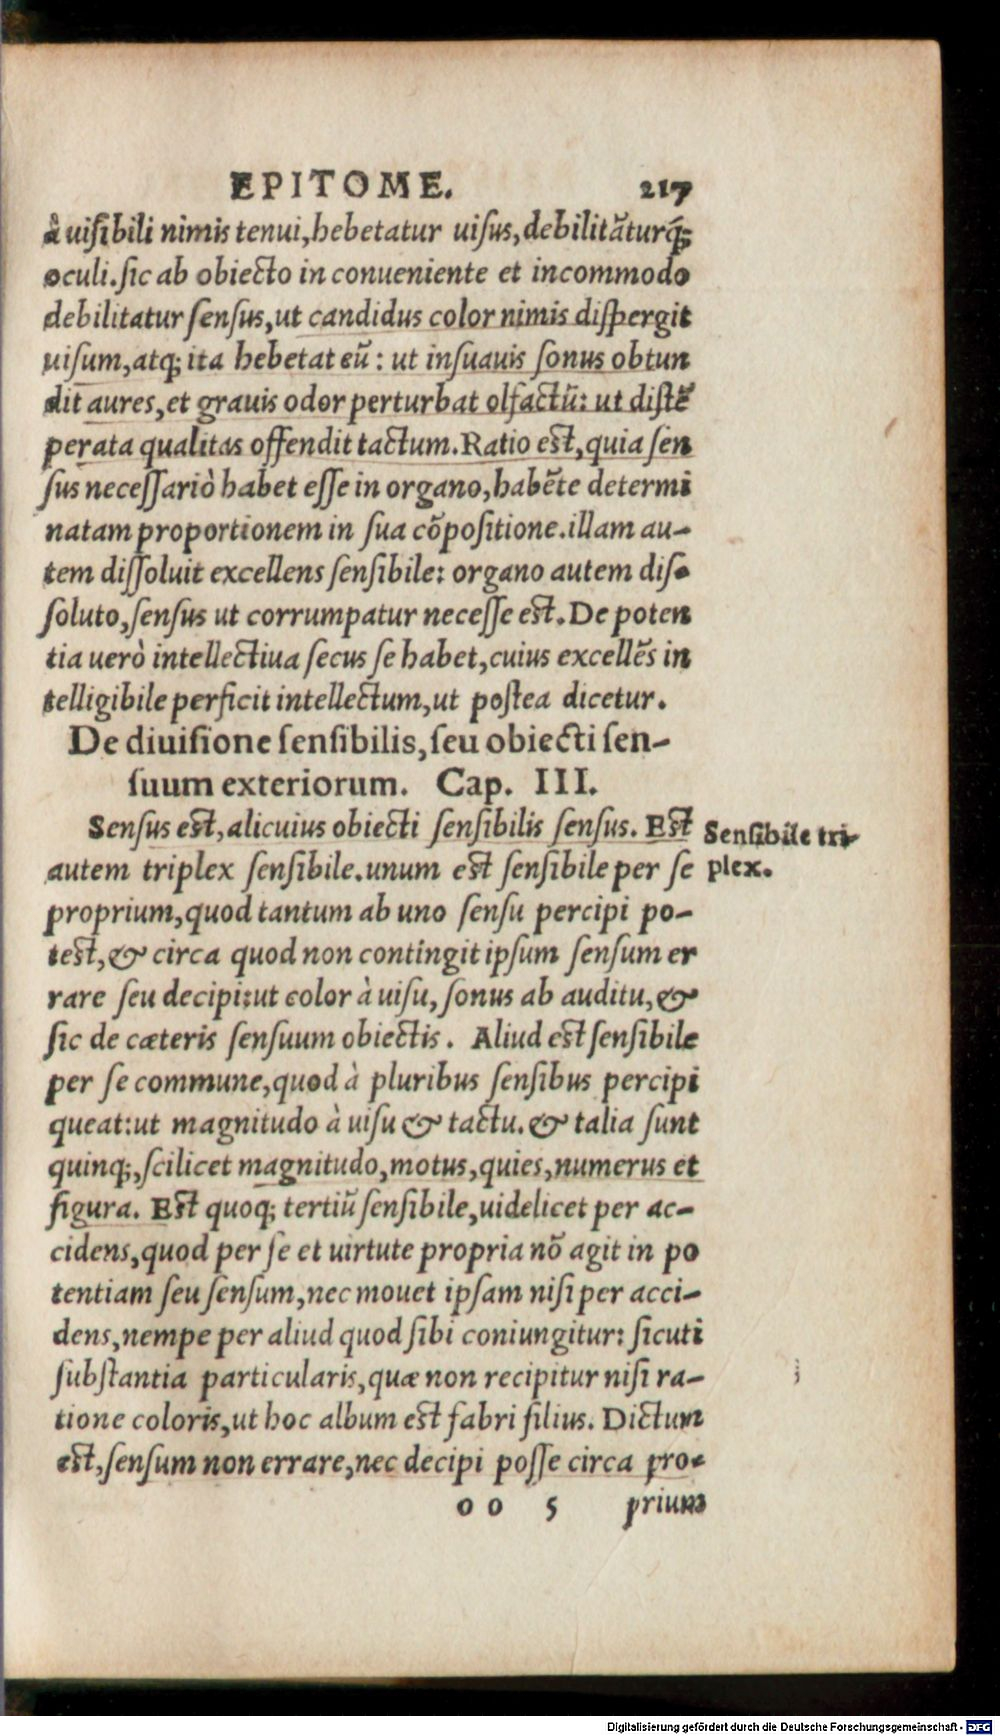 EPITOME. 217
à uisibili nimis tenui, hebetatur uisus, debilitãturq́;
oculi. sic ab obiecto in conueniente et incommodo
debilitatur sensus, ut candidus color nimis dispergit
uisum, atq; ita hebetat eũ: ut insuauis sonus obtun
dit aures, et grauis odor perturbat olfactũ: ut distẽ
perata qualitas offendit tactum. Ratio est, quia sen
sus necessariò habet esse in organo, habẽte determi
natam proportionem in sua cõpositione. illam au-
tem dissoluit excellens sensibile: organo autem dis-
soluto, sensus ut corrumpatur necesse est. De poten
tia uerò intellectiua secus se habet, cuius excellẽs in
telligibile perficit intellectum, ut postea dicetur.
De diuisione sensibilis, seu obiecti sen-
suum exteriorum. Cap. III.
Sensus est, alicuius obiecti sensibilis sensus. Est
Sensibile tri-
plex.
autem triplex sensibile. unum est sensibile per se
proprium, quod tantum ab uno sensu percipi po-
test, & circa quod non contingit ipsum sensum er
rare seu decipi: ut color à uisu, sonus ab auditu, &
sic de cæteris sensuum obiectis. Aliud est sensibile
per se commune, quod à pluribus sensibus percipi
queat: ut magnitudo à uisu & tactu. & talia sunt
quinq;, scilicet magnitudo, motus, quies, numerus et
figura. Est quoq; tertiũ sensibile, uidelicet per ac-
cidens, quod per se et uirtute propria nõ agit in po
tentiam seu sensum, nec mouet ipsam nisi per acci-
dens, nempe per aliud quod sibi coniungitur: sicuti
substantia particularis, quæ non recipitur nisi ra-
tione coloris, ut hoc album est fabri filius. Dictum
est, sensum non errare, nec decipi posse circa pro-
oo 5 prium
Digitalisierung gefördert durch die Deutsche Forschungsgemeinschaft - DFG